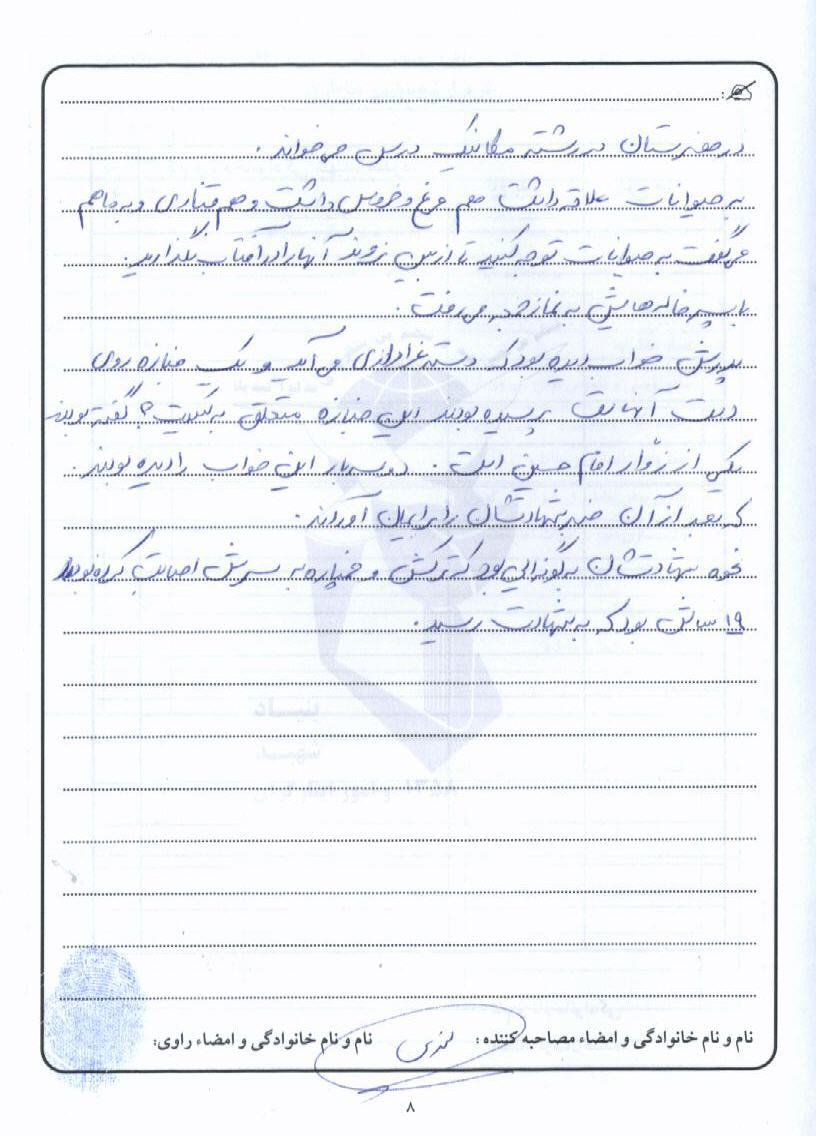 در هنرستان در رشته مکانیک درس می‌خواند .
به حیوانات علاقه داشت هم مرغ و خروس داشت و هم قناری و به ما هم
می‌گفت به حیوانات توجه کنید تا از بین نروند آنها را در آفتاب بگذارید .
با پسر خاله‌هایش به نماز جمعه می‌رفت .
پدرش خواب دیده بود که دسته عزاداری می‌آید و یک جنازه روی
دست آنهاست پرسیده بودند این جنازه متعلق به کیست ؟ گفته بودند
یکی از زوّار امام حسین است . دو سه بار این خواب را دیده بودند .
که بعد از آن خبر شهادتشان را برایمان آوردند .
نحوه شهادتشان به گونه‌ای بود که ترکش و خمپاره به سرش اصابت کرده بود
۱۹ سالش بود که به شهادت رسید .
نام و نام خانوادگی و امضاء مصاحبه کننده :
نام و نام خانوادگی و امضاء راوی:
۸